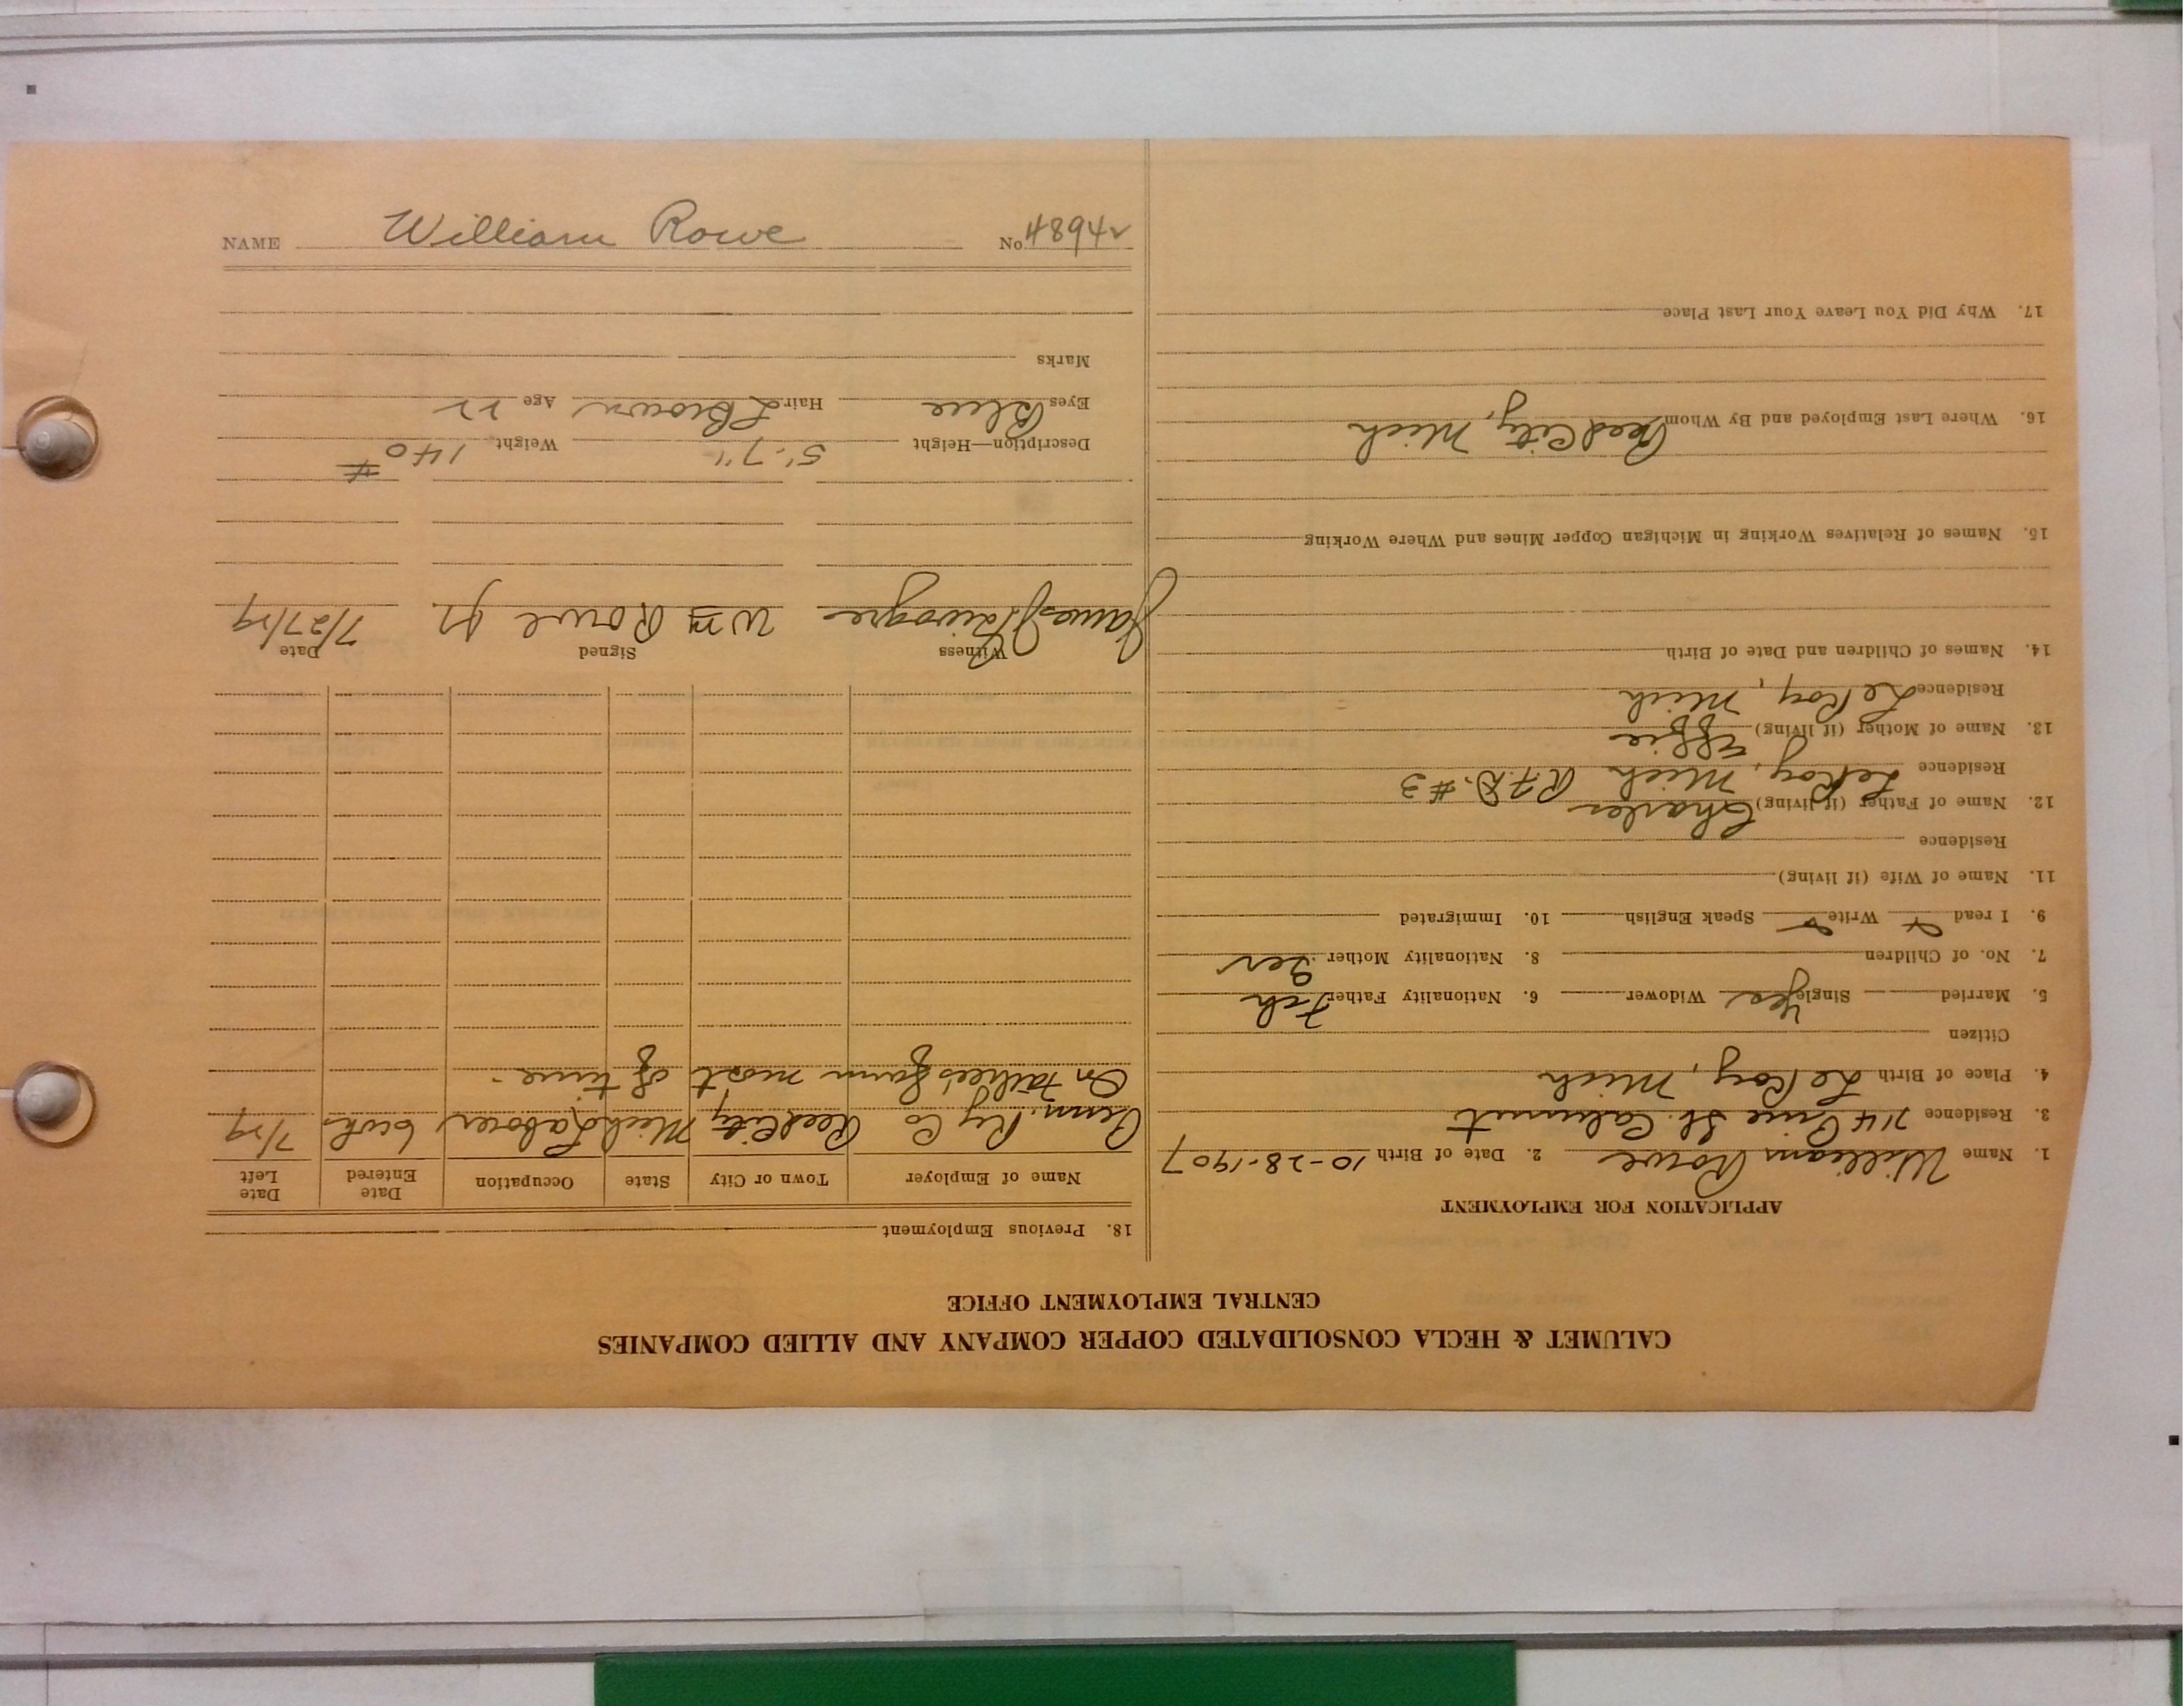 CALUMET & HECLA CONSOLIDATED COPPER COMPANY AND ALLIED COMPANIES
CENTRAL EMPLOYMENT OFFICE
APPLICATION FOR EMPLOYMENT
1. Name William Rowe 2. Date of Birth 10-28-1907
3. Residence 714 Pine St. Calumet
4. Place of Birth LeRoy, Mich
Citizen
5. Married Single Yes Widower 6. Nationality Father Fch
7. No. of Children 8. Nationality Mother Ger
9. I read Write Speak English 10. Immigrated
11. Name of Wife (if living)
Residence
12. Name of Father (if living) Charles
Residence LeRoy, Mich R.F.D. #3
13. Name of Mother (if living) Effie
Residence LeRoy, Mich
14. Names of Children and Date of Birth
15. Names of Relatives Working in Michigan Copper Mines and Where Working
16. Where Last Employed and By Whom Reed City, Mich
17. Why Did You Leave Your Last Place
18. Previous Employment
Name of Employer Town or City State Occupation Date Entered Date Left
Penn. Ry Co Reed City Mich Laborer 6wks 7/29
On Father's farm most of time.
Witness Signed Date
James Wm Rowe Jr 7/27/29
Description—Height 5'-7" Weight 140#
Eyes Blue Hair L Brown Age 22
Marks
NAME William Rowe No. 48942